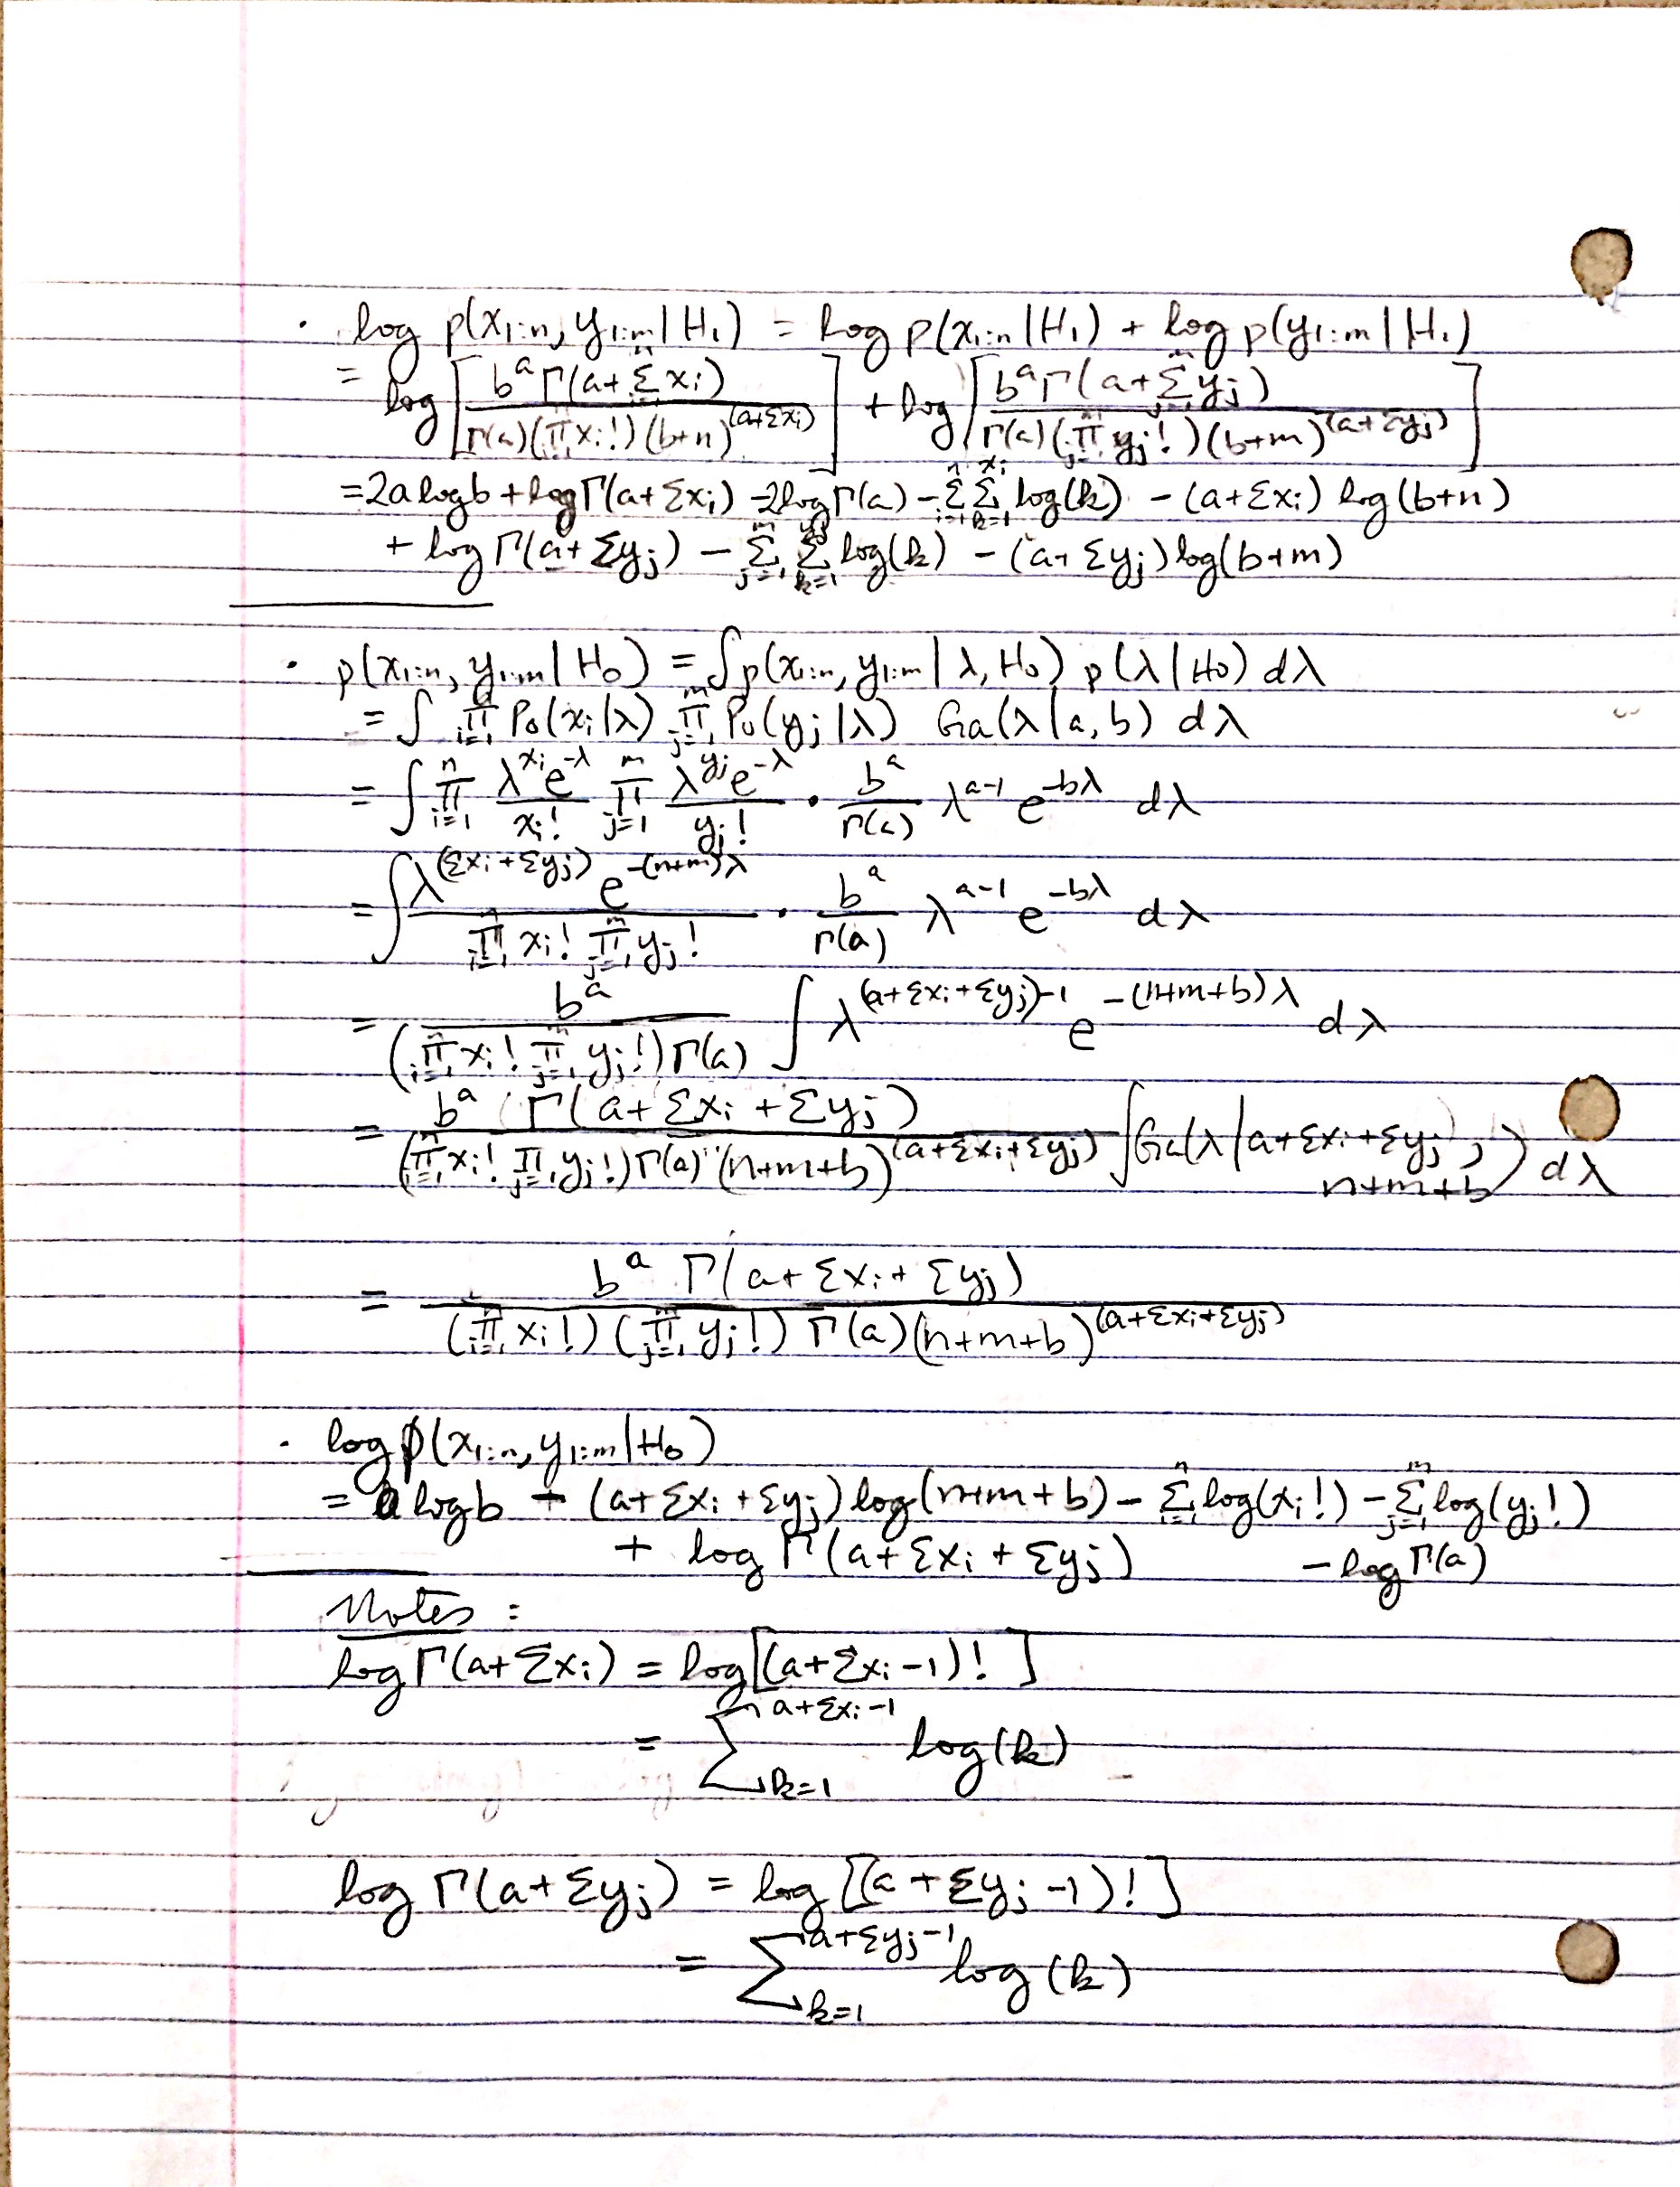 · log p(x₁:ₙ, y₁:ₘ | H₁) = log p(x₁:ₙ | H₁) + log p(y₁:ₘ | H₁)
= log [ bᵃ Γ(a + Σᵢ₌₁ⁿ xᵢ) / Γ(a) (∏ᵢ₌₁ⁿ xᵢ!) (b+n)^(a+Σxᵢ) ] + log [ bᵃ Γ(a + Σⱼ₌₁ᵐ yⱼ) / Γ(a) (∏ⱼ₌₁ᵐ yⱼ!) (b+m)^(a+Σyⱼ) ]
= 2a log b + log Γ(a+Σxᵢ) - 2 log Γ(a) - Σᵢ₌₁ⁿ Σₖ₌₁^(xᵢ) log(k) - (a+Σxᵢ) log(b+n)
+ log Γ(a+Σyⱼ) - Σⱼ₌₁ᵐ Σₖ₌₁^(yⱼ) log(k) - (a+Σyⱼ) log(b+m)
· p(x₁:ₙ, y₁:ₘ | H₀) = ∫ p(x₁:ₙ, y₁:ₘ | λ, H₀) p(λ | H₀) dλ
= ∫ ∏ᵢ₌₁ⁿ Po(xᵢ|λ) ∏ⱼ₌₁ᵐ Po(yⱼ|λ) Ga(λ|a, b) dλ
= ∫ ∏ᵢ₌₁ⁿ λ^(xᵢ) e^(-λ) / xᵢ! ∏ⱼ₌₁ᵐ λ^(yⱼ) e^(-λ) / yⱼ! · bᵃ / Γ(a) λ^(a-1) e^(-bλ) dλ
= ∫ λ^(Σxᵢ+Σyⱼ) e^(-(n+m)λ) / ∏ᵢ₌₁ⁿ xᵢ! ∏ⱼ₌₁ᵐ yⱼ! · bᵃ / Γ(a) λ^(a-1) e^(-bλ) dλ
= bᵃ / (∏ᵢ₌₁ⁿ xᵢ! ∏ⱼ₌₁ᵐ yⱼ!) Γ(a) ∫ λ^((a+Σxᵢ+Σyⱼ)-1) e^(-(n+m+b)λ) dλ
= bᵃ Γ(a+Σxᵢ+Σyⱼ) / (∏ᵢ₌₁ⁿ xᵢ! ∏ⱼ₌₁ yⱼ!) Γ(a) (n+m+b)^(a+Σxᵢ+Σyⱼ) ∫ Ga(λ | a+Σxᵢ+Σyⱼ, n+m+b) dλ
= bᵃ Γ(a+Σxᵢ+Σyⱼ) / (∏ᵢ₌₁ⁿ xᵢ!) (∏ⱼ₌₁ᵐ yⱼ!) Γ(a) (n+m+b)^(a+Σxᵢ+Σyⱼ)
· log p(x₁:ₙ, y₁:ₘ | H₀)
= a log b - (a+Σxᵢ+Σyⱼ) log(n+m+b) - Σᵢ₌₁ⁿ log(xᵢ!) - Σⱼ₌₁ᵐ log(yⱼ!)
+ log Γ(a+Σxᵢ+Σyⱼ) - log Γ(a)
Notes :
log Γ(a+Σxᵢ) = log[(a+Σxᵢ-1)!]
= Σₖ₌₁^(a+Σxᵢ-1) log(k)
log Γ(a+Σyⱼ) = log[(a+Σyⱼ-1)!]
= Σₖ₌₁^(a+Σyⱼ-1) log(k)